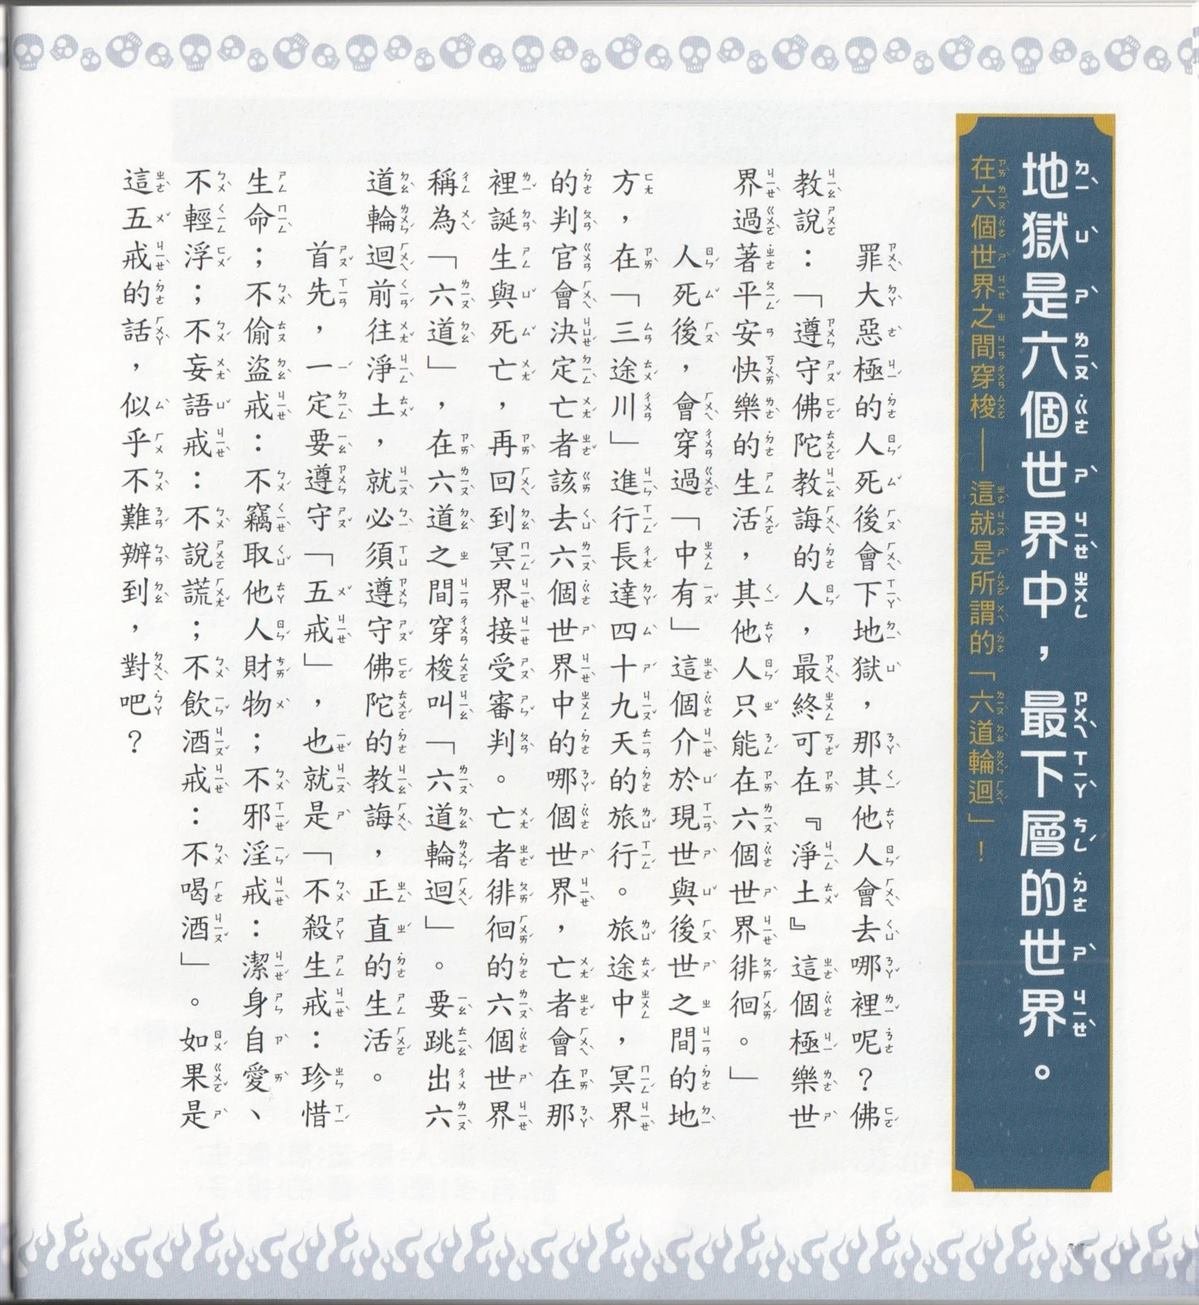 地獄是六個世界中，最下層的世界。
在六個世界之間穿梭——這就是所謂的「六道輪迴」！
罪大惡極的人死後會下地獄，那其他人會去哪裡呢？佛
教說：「遵守佛陀教誨的人，最終可在『淨土』這個極樂世
界過著平安快樂的生活，其他人只能在六個世界徘徊。」
人死後，會穿過「中有」這個介於現世與後世之間的地
方，在「三途川」進行長達四十九天的旅行。旅途中，冥界
的判官會決定亡者該去六個世界中的哪個世界，亡者會在那
裡誕生與死亡，再回到冥界接受審判。亡者徘徊的六個世界
稱為「六道」，在六道之間穿梭叫「六道輪迴」。要跳出六
道輪迴前往淨土，就必須遵守佛陀的教誨，正直的生活。
首先，一定要遵守「五戒」，也就是「不殺生戒：珍惜
生命；不偷盜戒：不竊取他人財物；不邪淫戒：潔身自愛、
不輕浮；不妄語戒：不說謊；不飲酒戒：不喝酒」。如果是
這五戒的話，似乎不難辦到，對吧？